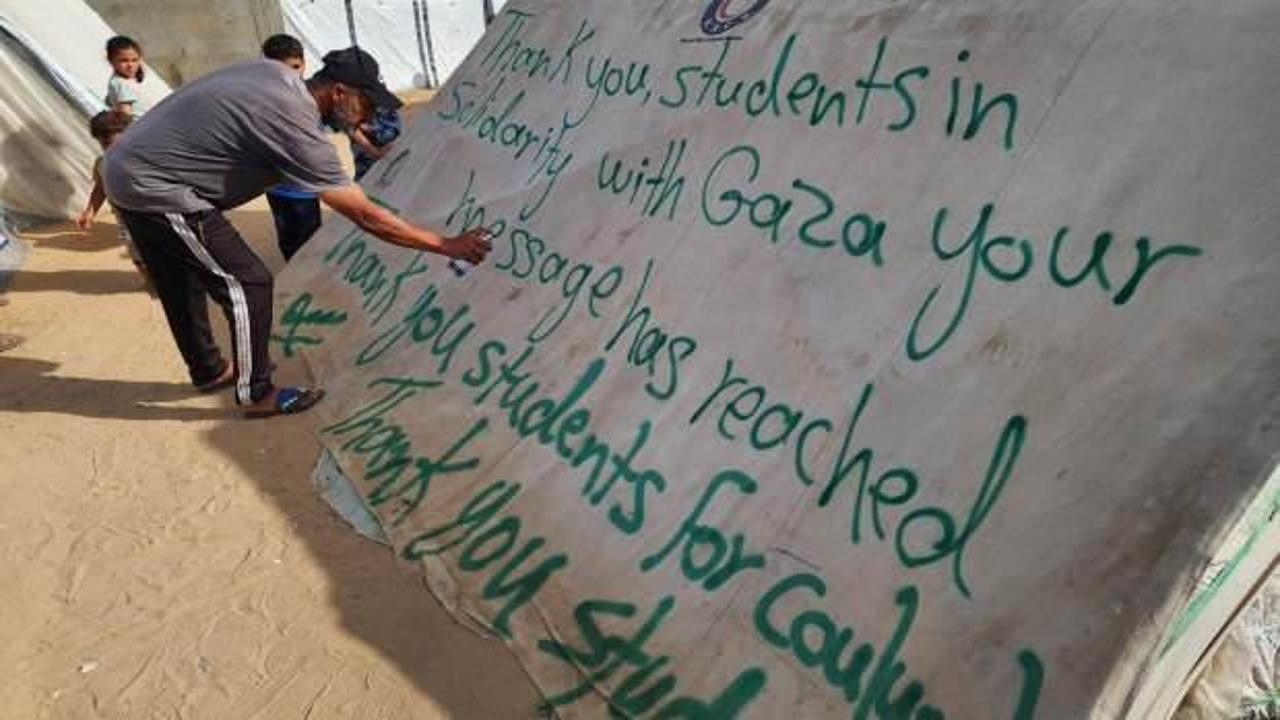 Thank you, students in
Solidarity with Gaza your
message has reached
Thank you students for
Thank you